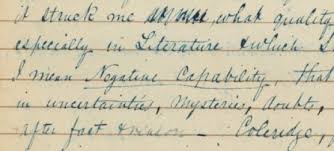 it struck me what quality
especially in Literature & which S
I mean Negative Capability, that
in uncertainties, Mysteries, doubts,
after fact & reason – Coleridge,